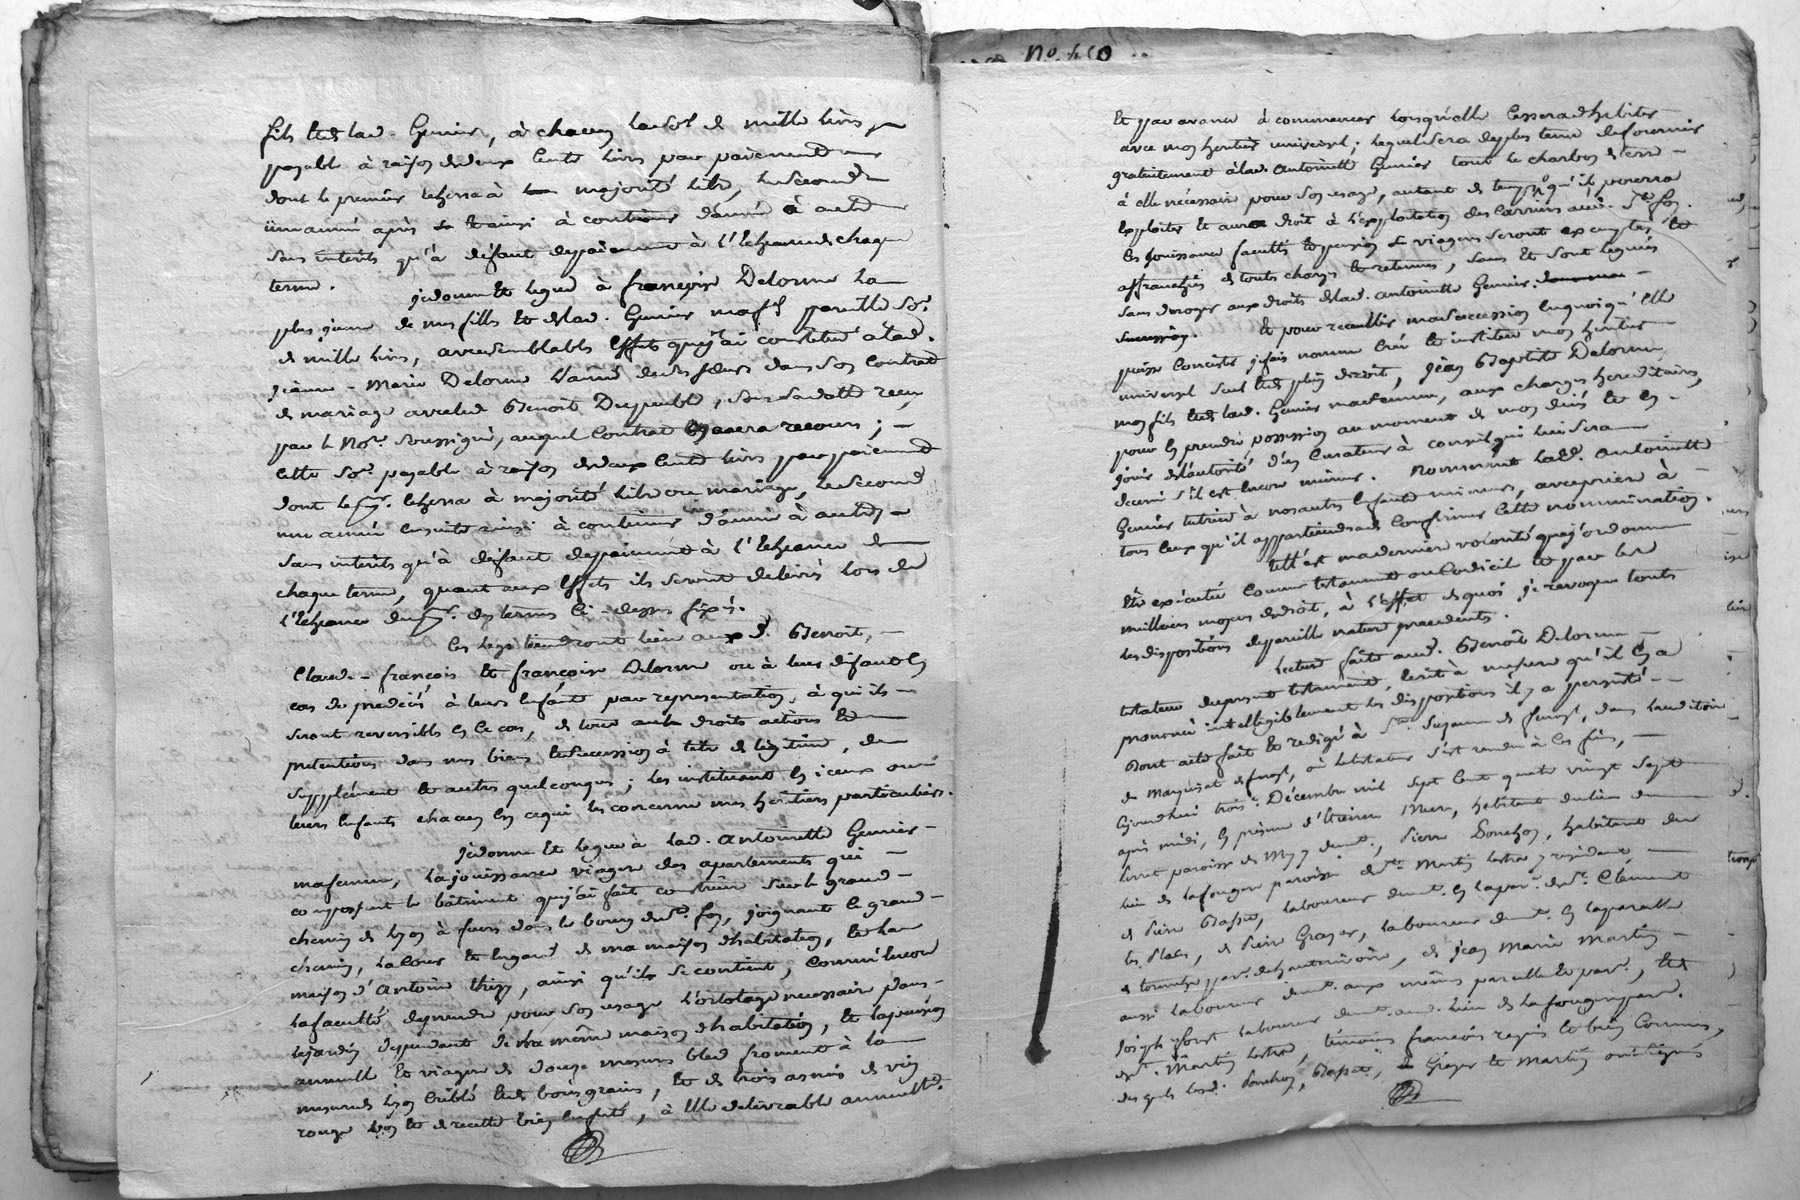 fils et de lad. Genier, à chacun la so.e de mille livres
payable à raison de deux cents livres par paiement
dont le premier echerra à majorité libre, le second
une année après & ainsi à continuer d'année à autre
sans intérêts qu'à défaut de paiement à l'echeance de chaque
terme.
je donne et legue à françoise Delorme la
plus jeune de mes filles et de lad. Genier ma f.e pareille so.e
de mille livres, avec semblables effets que j'ai constitué à lad.
jeanne-Marie Delorme l'ainée de ses sœurs dans son contrat
de mariage avec led. Benoit Dupeuble, sous sa datte reçu
par le No.re soussigné, auquel contrat on aura recours;
cette so.e payable à raison de deux cents livres par paiement
dont le p.er echerra à majorité libre ou mariage, le second
une année ensuite ainsi à continuer d'année à autre
sans intérêts qu'à défaut de paiement à l'echeance de
chaque terme, quant aux effets ils seront délivrés lors de
l'echeance du p.er des termes ci-dessus fixés.
Ces legs tiendront lieu aux d. Benoit,
Claude-françois et françoise Delorme ou à leur défaut en
cas de prédécès à leurs enfants par representation, à qui ils
seront reversibles en ce cas, de tous autres droits actions et
prétentions dans mes biens et succession à titre de légitime, de
supplément et autres quelconques; les instituant en iceux ou
leurs enfants chacun en ce qui les concerne mes héritiers particuliers.
je donne et legue à lad. Antoinette Genier
ma femme, la jouissance viagere des apartements qui
composent le bâtiment que j'ai fait construire sur le grand
chemin de lyon à feurs dans le bourg de S.te foy, joignant le grand
chemin, la cour et hangard de ma maison d'habitation, et la
maison d'Antoine, ainsi qu'ils se contient, comm'encore
la faculté de prendre pour son usage l'ortolage necessaire dans
le jardin dependant de ma même maison d'habitation, et la pension
annuelle et viagere de douze mesures bled froment à la
mesure de lyon criblé et de bons grains, et de trois asnées de vin
rouge bon et de recette bien enfuté, à elle délivrable annuelle.t
N.o
et par avance à commencer lorsqu'elle cessera d'habiter
avec mon heritier universel; lequel sera de plus tenu de fournir
gratuitement à lad. Antoinette Genier tout le charbon de terre
à elle nécessaire pour son usage, autant de temps qu'il pourra
exploiter et aura droit à l'exploitation des carrieres aud. S.te foy.
les jouissance facultés et pension & viageres seront exemptes et
affranchies de toutes charges et retenues, sans et sont legués
sans deroger aux droits de lad. Antoinette Genier.
et pour recueillir ma succession en quoi qu'elle
puisse consister je fais nomme créé et institue mon héritier
universel seul et de plein droit, jean Baptiste Delorme,
mon fils et de lad. Genier ma femme, aux charges héréditaires,
pour en prendre possession au moment de mon décès et en
jouir de l'autorité d'un curateur à conseil qui lui sera
decerné s'il est encore mineur. Nommant lad. Antoinette
Genier tutrice à nos autres enfants mineurs, avec priere à
tous ceux qu'il appartiendra de confirmer cette nommination.
telle est ma derniere volonté que j'ordonne
être exécutée comme testament ou codicile et par les
meilleurs moyens de droit, à l'effet de quoi je revoque toutes
les dispositions de pareille nature precedentes.
Lecture faite aud. Benoit Delorme
testateur du present testament, écrit à mesure qu'il en a
prononcé intelligiblement les dispositions il y a persisté
Dont acte fait et redigé à S.te, dans l'auditoire
du marquisat, où le testateur s'est rendu à ces fins,
aujourdhui trois Décembre mil sept cent quatre vingt sept
après midi, en présence d'Etienne, habitant du lieu de
paroisse de, Pierre Ponchon, habitant du
lieu de la fougere paroisse de S.t Martin Lestra y residant,
de Pierre, laboureur dem.t en la par. de S.t Clement
les Places, de Pierre Grayer, laboureur dem.t en la paroisse
de, de jean Marie Martin
aussi laboureur dem.t aux mêmes, et de
joseph laboureur dem.t aud. lieu de la fougere par.
de S.t Martin Lestra, témoins françois requis et bien connus,
des quels lesd. Ponchon, Grayer et Martin ont signé